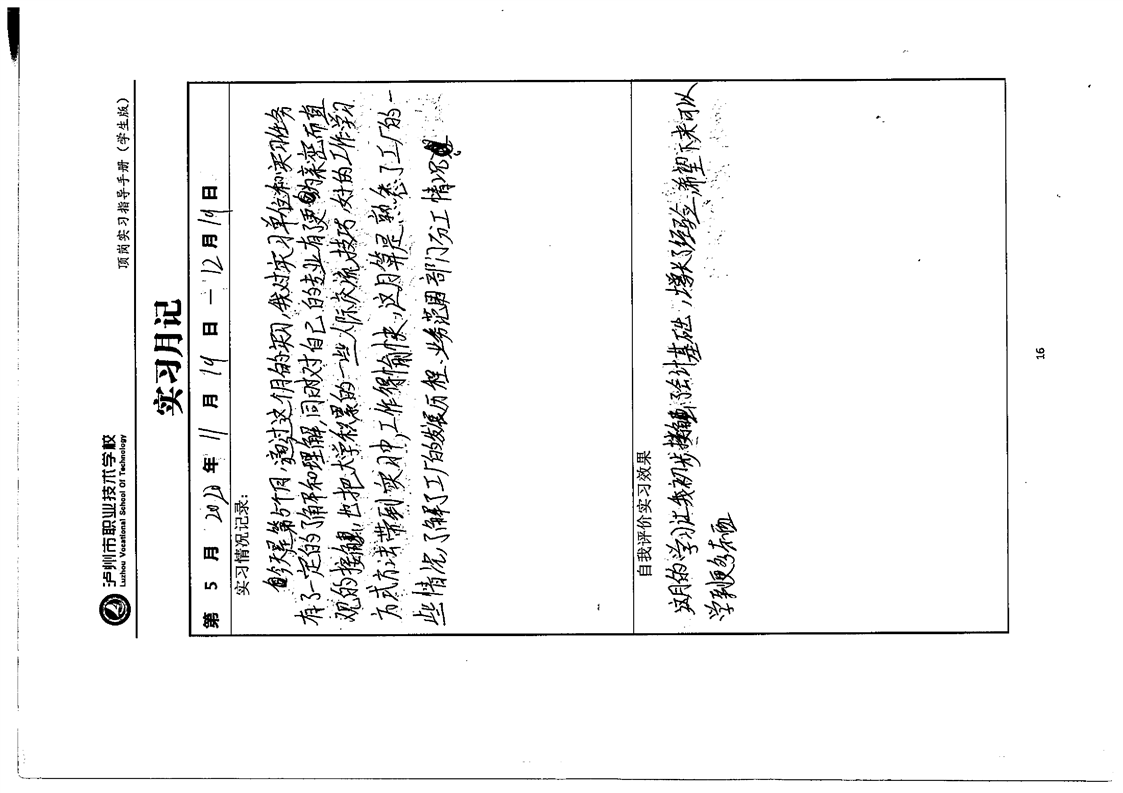 泸州市职业技术学校
Luzhou Vocational School Of Technology
顶岗实习指导手册（学生版）
实习月记
第 5 月 2020年 11 月 19 日 — 12月19日
实习情况记录：
今天是第5个月，通过这个月的实习，我对实习单位和实习任务
有了一定的了解和理解，同时对自己的专业有更的亲密而直
观的接触，也把大学积累的一些人际交流技巧，好的工作学习
方式方法带到实习中，工作得愉快，这月算是熟悉了工厂的一
些情况，了解了工厂的发展历程、业务范围部门分工情况。
自我评价实习效果
这月的学习让我初步接触了会计基础，增长了经验，希望下来可以
学到更多东西
16